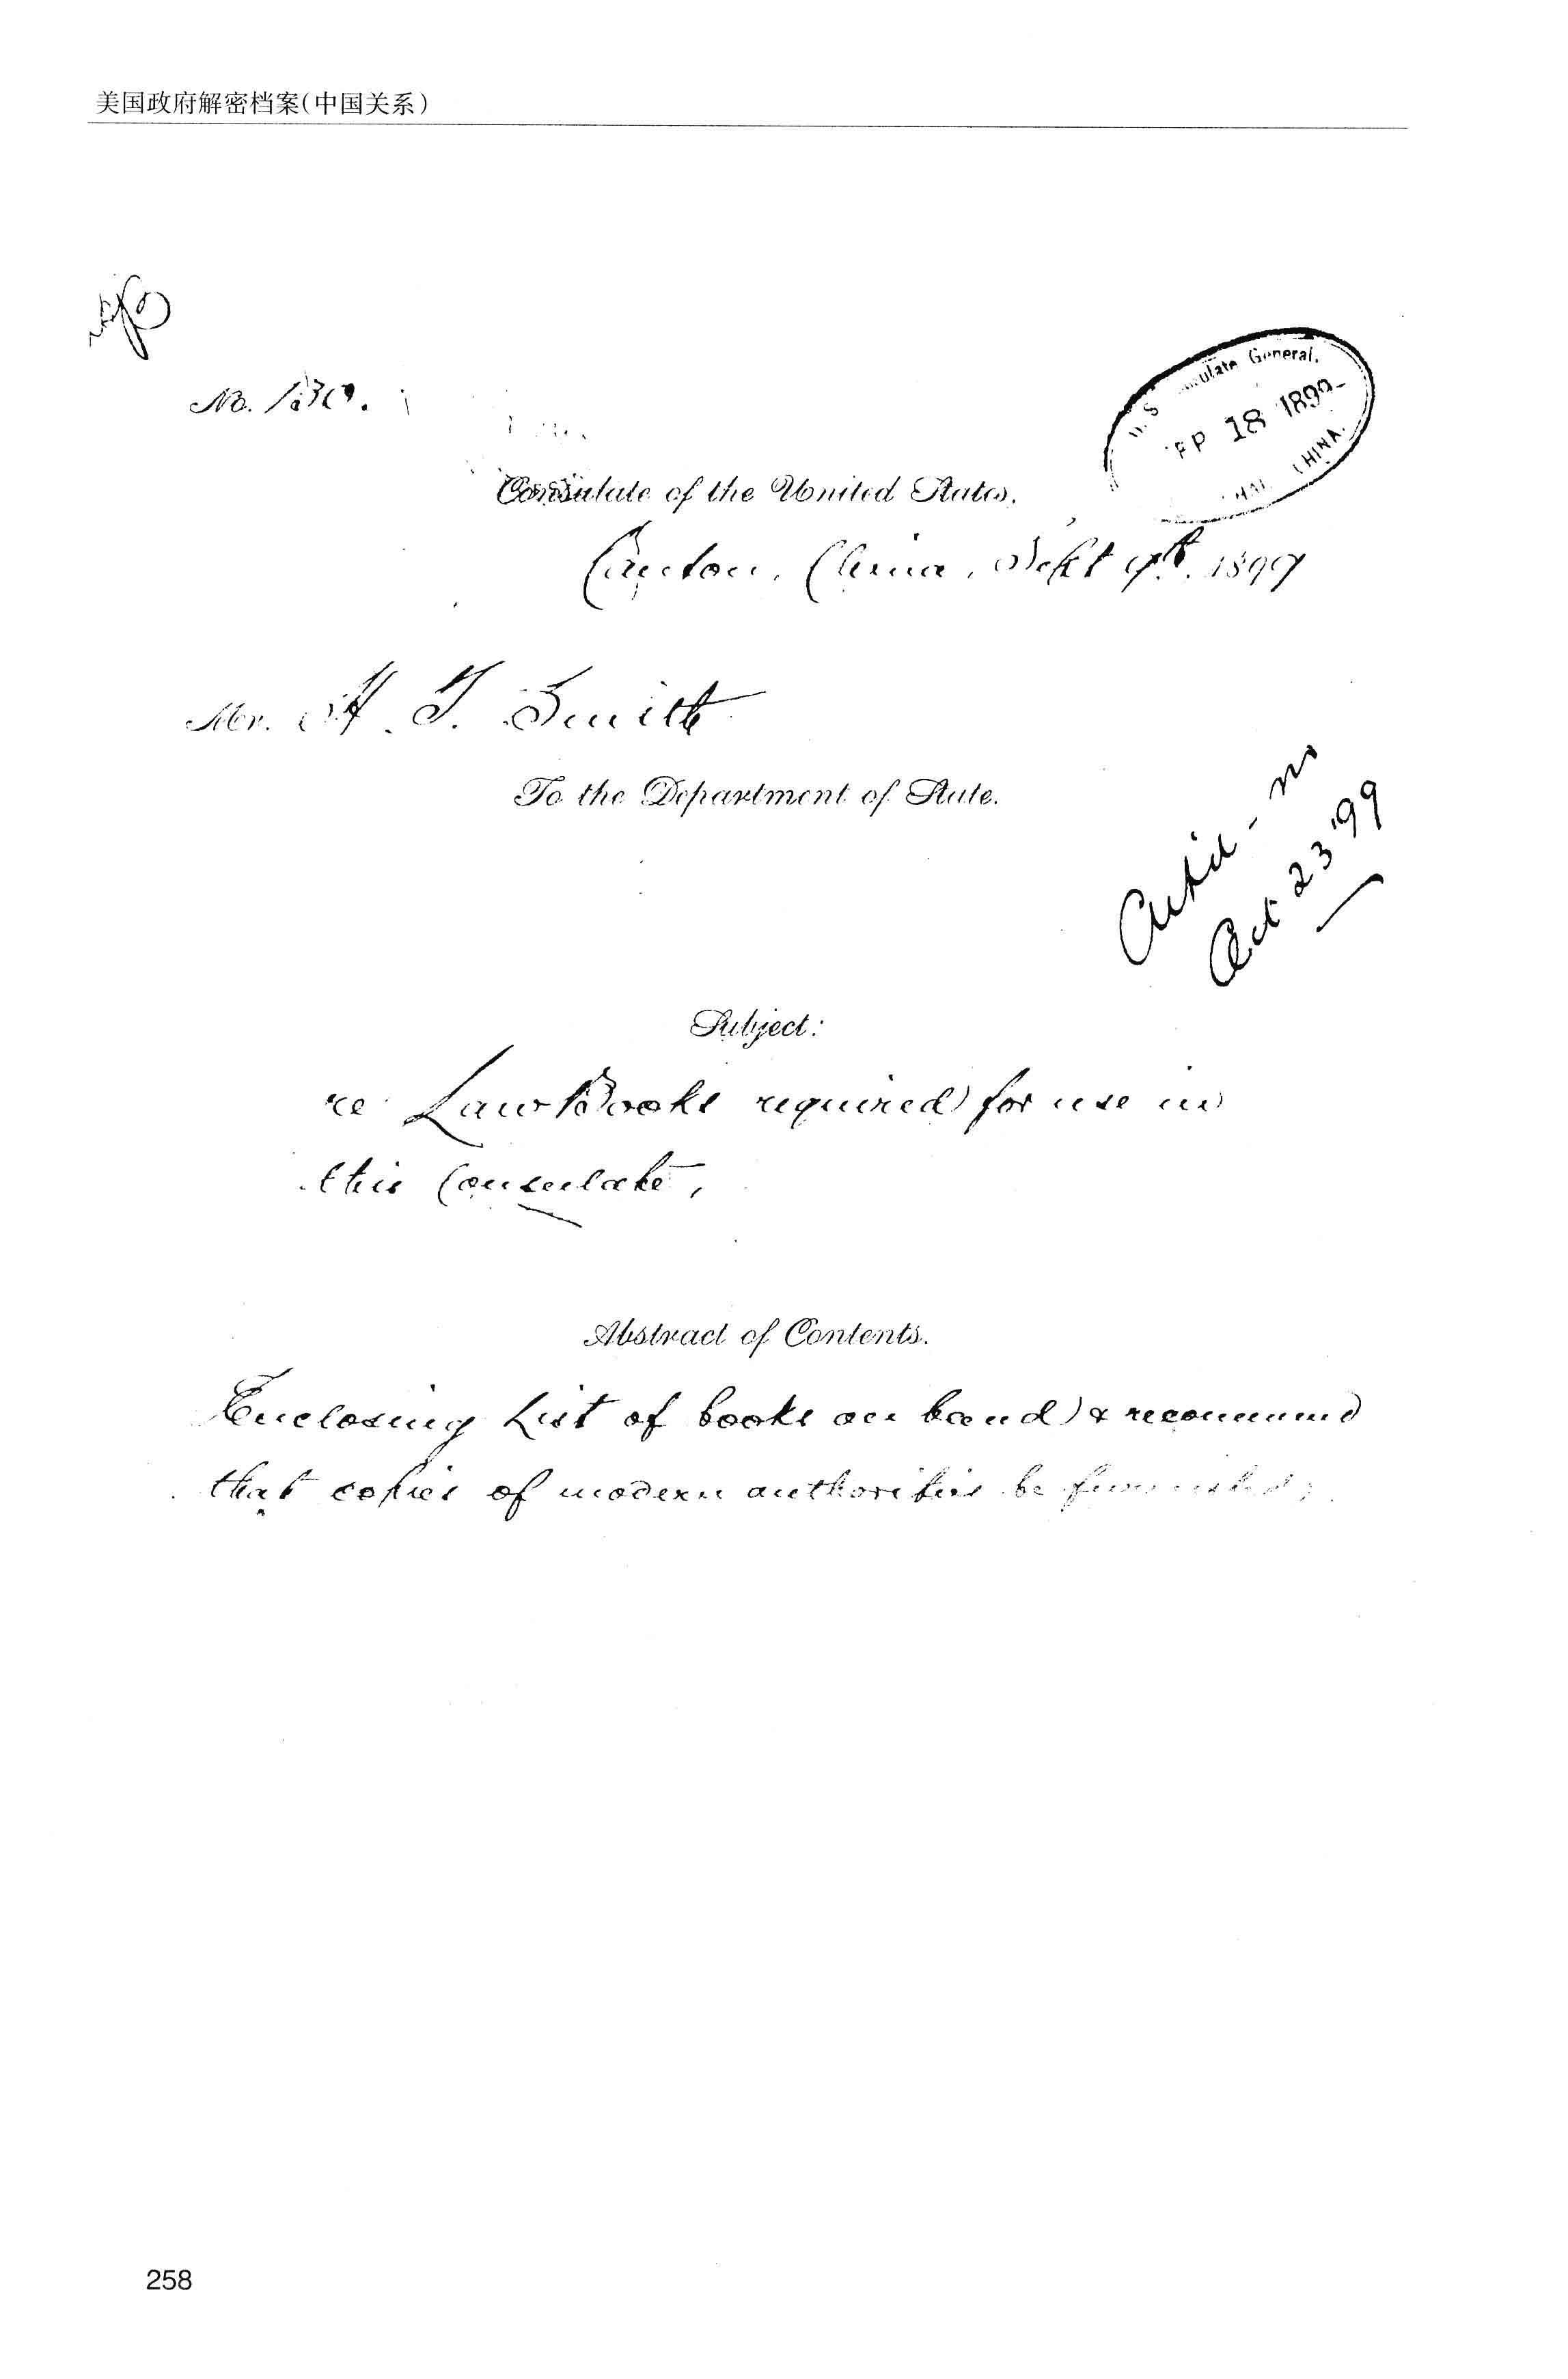 美国政府解密档案(中国关系)
No. 130.
U. S. Consulate General,
SEP 18 1899
CHINA.
Consulate of the United States,
Canton, China, Sept 9th. 1899
Mr. H. T. Smith
To the Department of State.
Oct 23 '99
Subject:
re Law Books required for use in
this Consulate,
Abstract of Contents.
Enclosing List of books on hand & recommend
that copies of modern authorities be furnished;
258